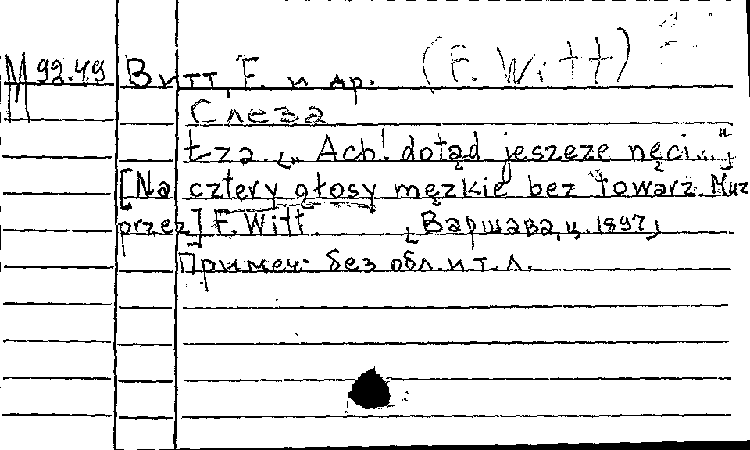 М 92.49 Витт, F. и др. (F. Witt)
Слеза
Łza. „Ach! dotąd jeszeze nęci..."
[Na cztery głosy męzkie bez towarz. Muz
przez] F. Witt. [Варшава, ц. 1897]
Примеч: без обл. и т. л.